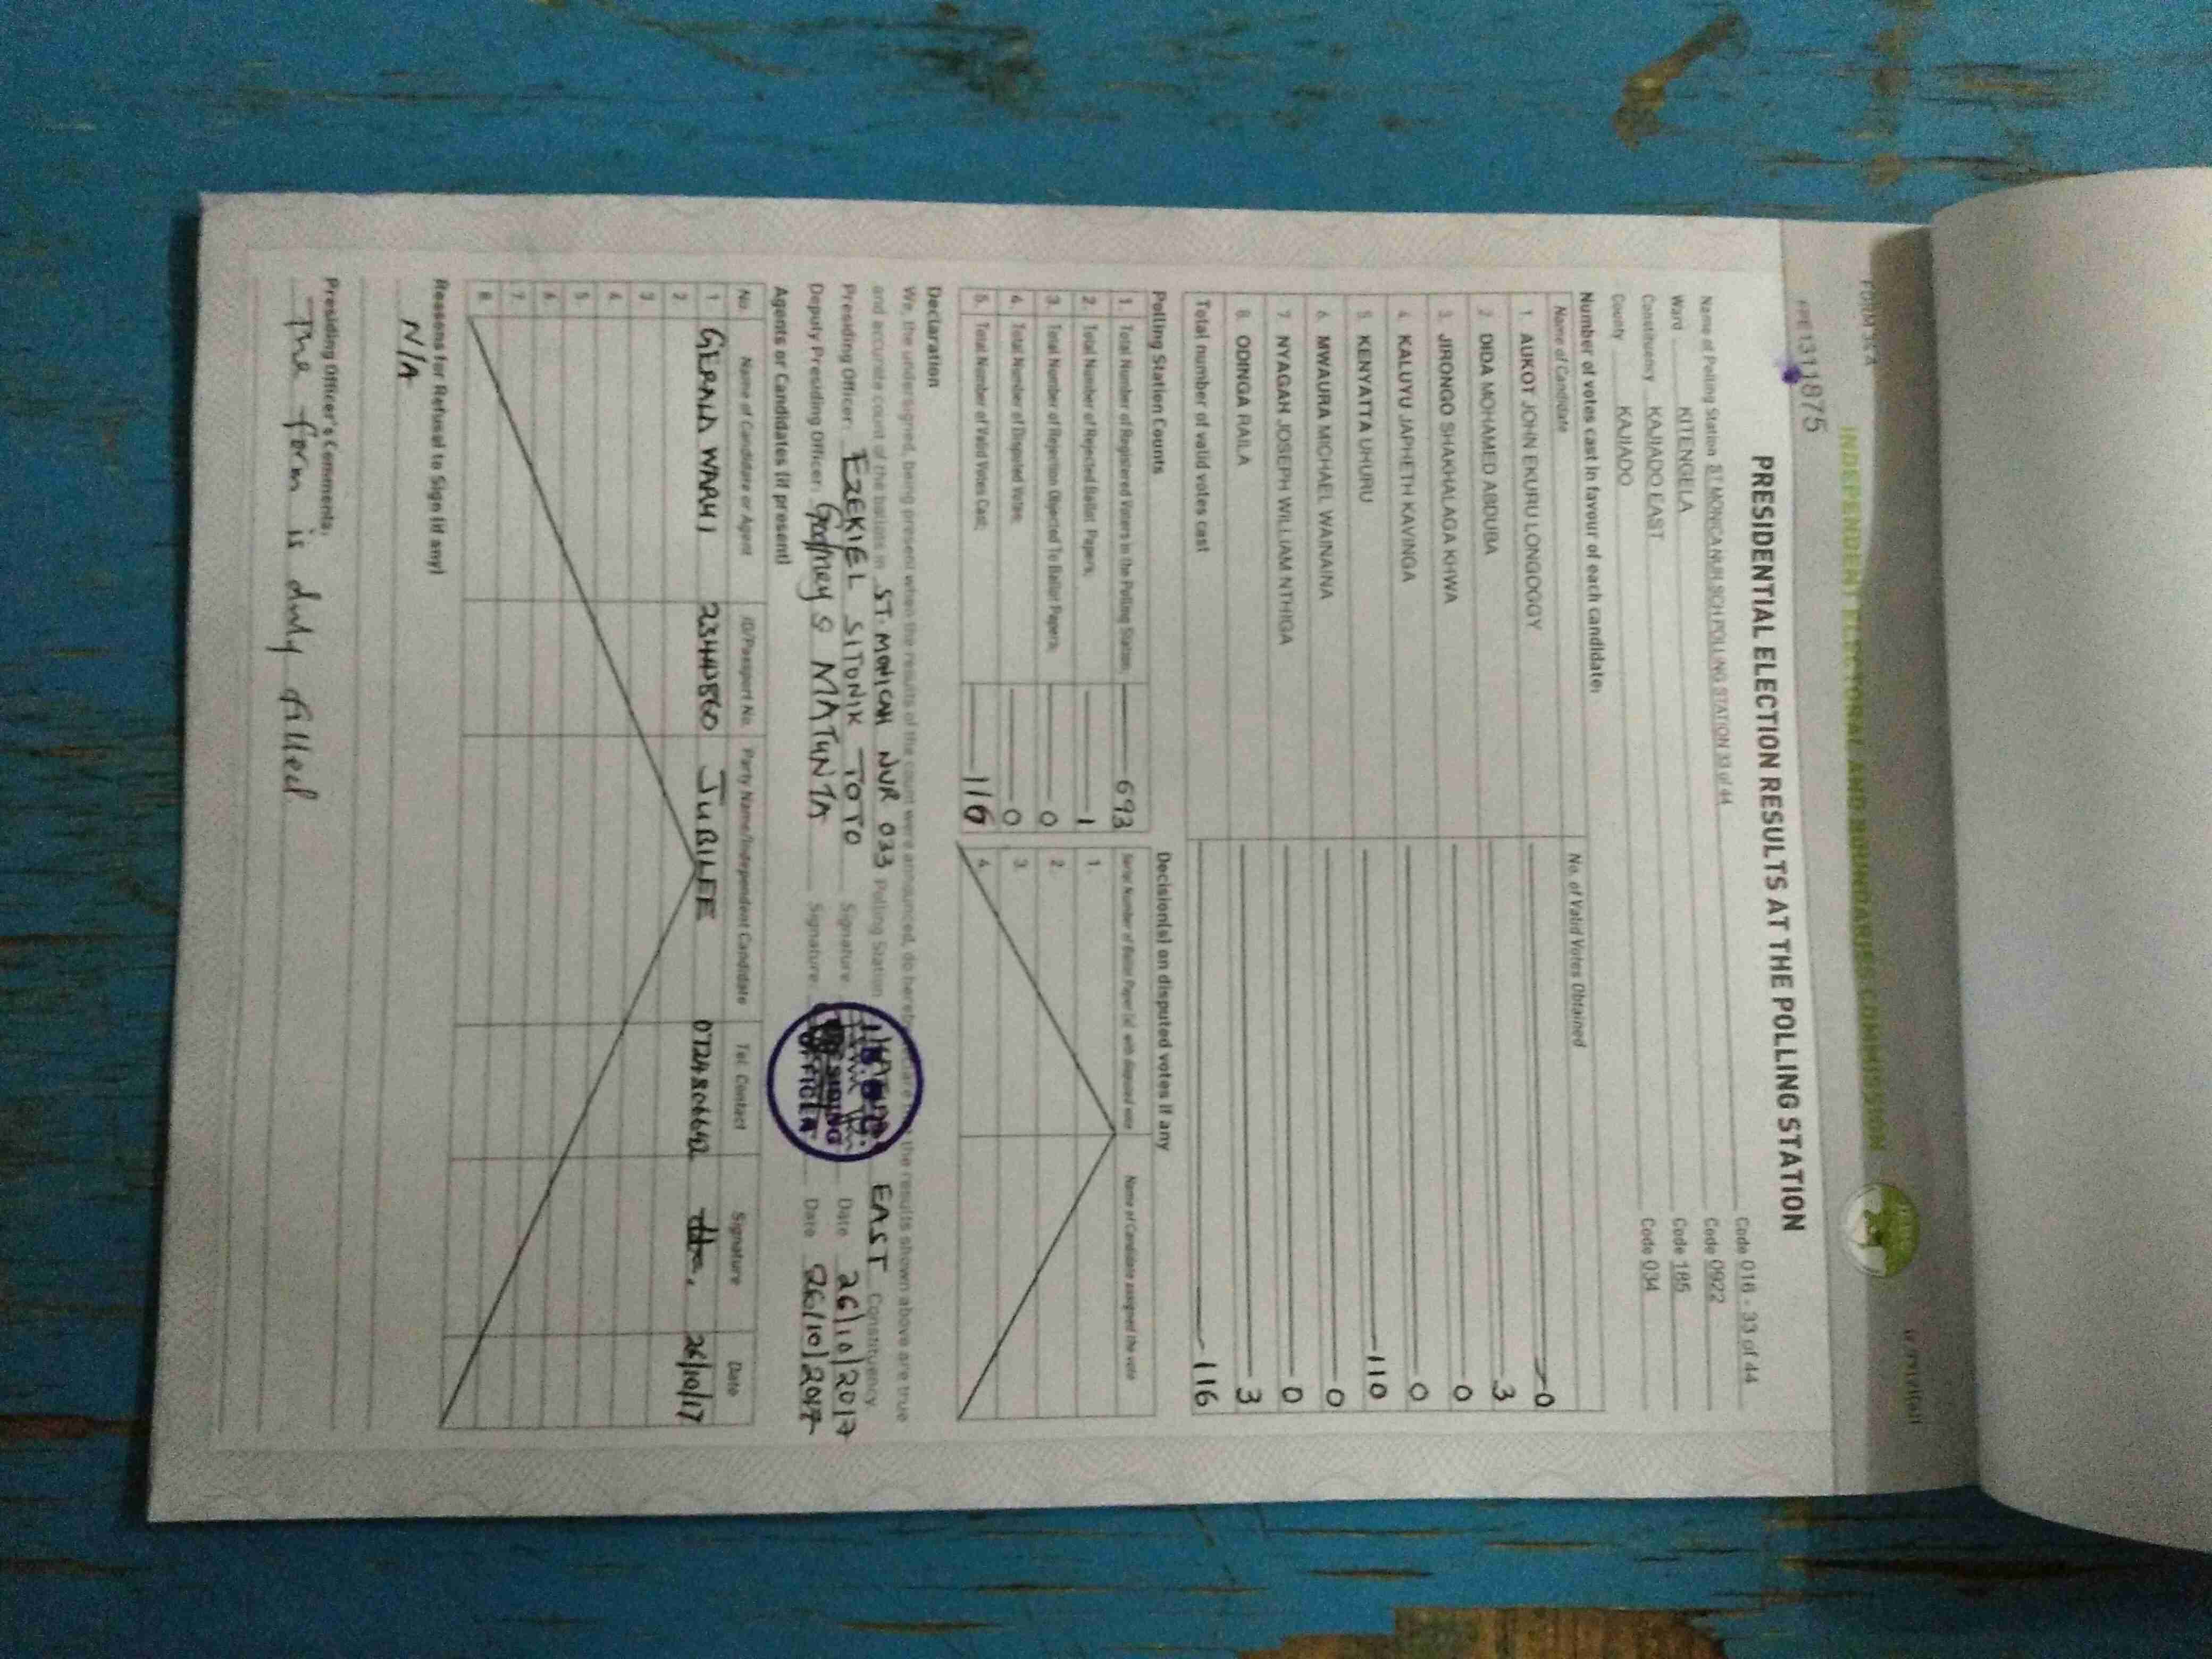 FORM 34 A
INDEPENDENT ELECTORAL AND BOUNDARIES COMMISSION
1311875
PRESIDENTIAL ELECTION RESULTS AT THE POLLING STATION
Code 018 - 33 of 44
Name of Polling Station ST MONICA NUR SCH POLLING STATION 33 of 44 Code 0922
Ward KITENGELA Code 185
Constituency KAJIADO EAST Code 034
County KAJIADO
Number of votes cast in favour of each candidate:
Name of Candidate No. of Valid Votes Obtained
1. AUKOT JOHN EKURU LONGOGGY 0
2 DIDA MOHAMED ABDUBA 3
3. JIRONGO SHAKHALAGA KHWA 0
4. KALUYU JAPHETH KAVINGA 0
5 KENYATTA UHURU 110
6. MWAURA MICHAEL WAINAINA 0
7 NYAGAH JOSEPH WILLIAM NTHIGA 0
8. ODINGA RAILA 3
Total number of valid votes cast 116
Polling Station Counts
1. Total Number of Registered Voters in the Polling Station; 693
2. Total Number of Rejected Ballot Papers; 1
3. Total Number of Rejection Objected To Ballot Papers; 0
4. Total Number of Disputed Votes; 0
5. Total Number of Valid Votes Cast; 116
Decision(s) on disputed votes if any
Serial Number of Ballot Paper (s) with disputed vote Name of Candidate assigned the vote
1.
2.
3.
4.
Declaration
We, the undersigned, being present when the results of the count were announced, do hereby declare the results shown above are true
and accurate count of the ballots in ST. MONICAH NUR 033 Polling Station EAST Constituency
Presiding Officer: EZEKIEL SITONIK TOTO Signature Date 26/10/2017
Deputy Presiding Officer: Godfrey MATUNTA Signature Date 26/10/2017
PRESIDING
OFFICER
Agents or Candidates (if present)
No. Name of Candidate or Agent ID/Passport No. Party Name/Independent Candidate Tel. Contact Signature Date
1 JUBILEE 26/10/17
2.
3
4
5
6.
7.
8.
Reasons for Refusal to Sign (if any)
N/A
Presiding Officer's Comments:
The form is duly filled